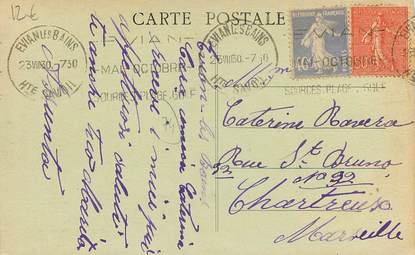 12€
CARTE POSTALE
EVIAN LES BAINS
23 VIII 30 - 7 50
HTE SAVOIE
EVIAN
MAI-OCTOBRE
SOURCES. PLAGE. GOLF
EVIAN LES BAINS
-7 50
HTE SAVOIE
EVIAN
OCTOBRE
SOURCES. PLAGE. GOLF
Evian-les-Bains
Cara amica Caterina
i miei più
saluti
a te anche tua
Assunta
Caterine Ravera
Rue St Bruno
No 22
Chartreux
Marseille